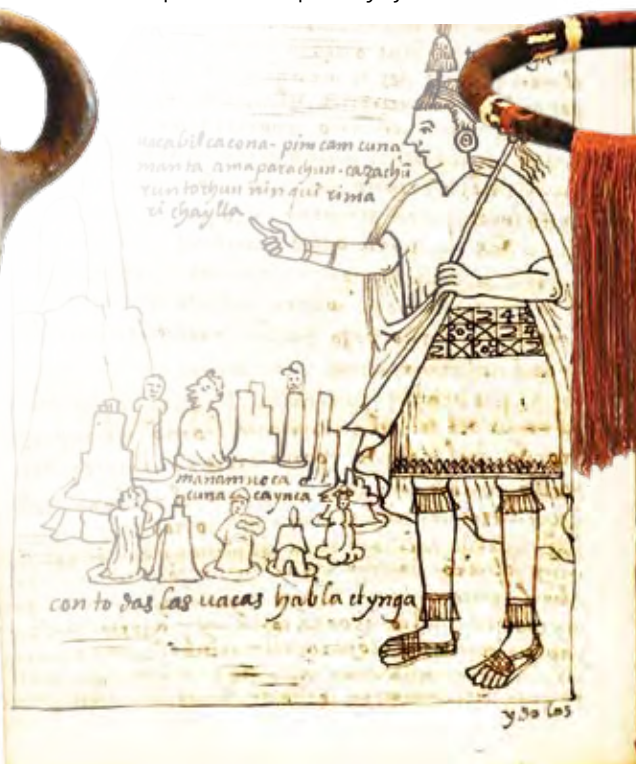 uacabilcacona-pim cam cuna
manta ama parachun-cazachũ
runtochun ninqui rima
ri chaylla
manam noca
cuna caynca
con todas las uacas habla elynga
ydolos